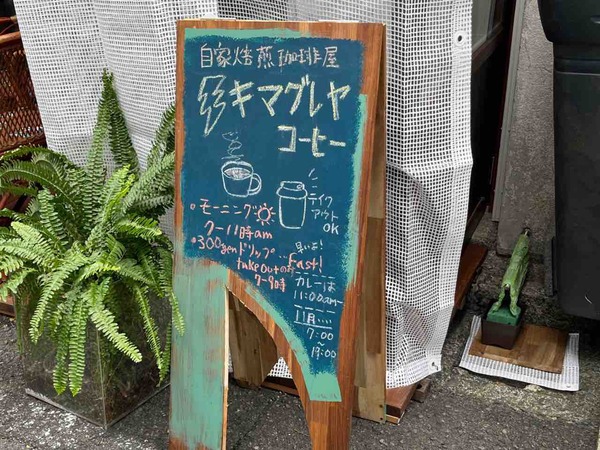 自家焙煎珈琲屋
キマグレヤ
コーヒー
テイク
アウト
OK
•モーニング
7-11時am
•300yenドリップ
早いよ!
...Fast!
takeoutのみ
7-9時
カレーは
11:00am~
11月
7:00
19:00